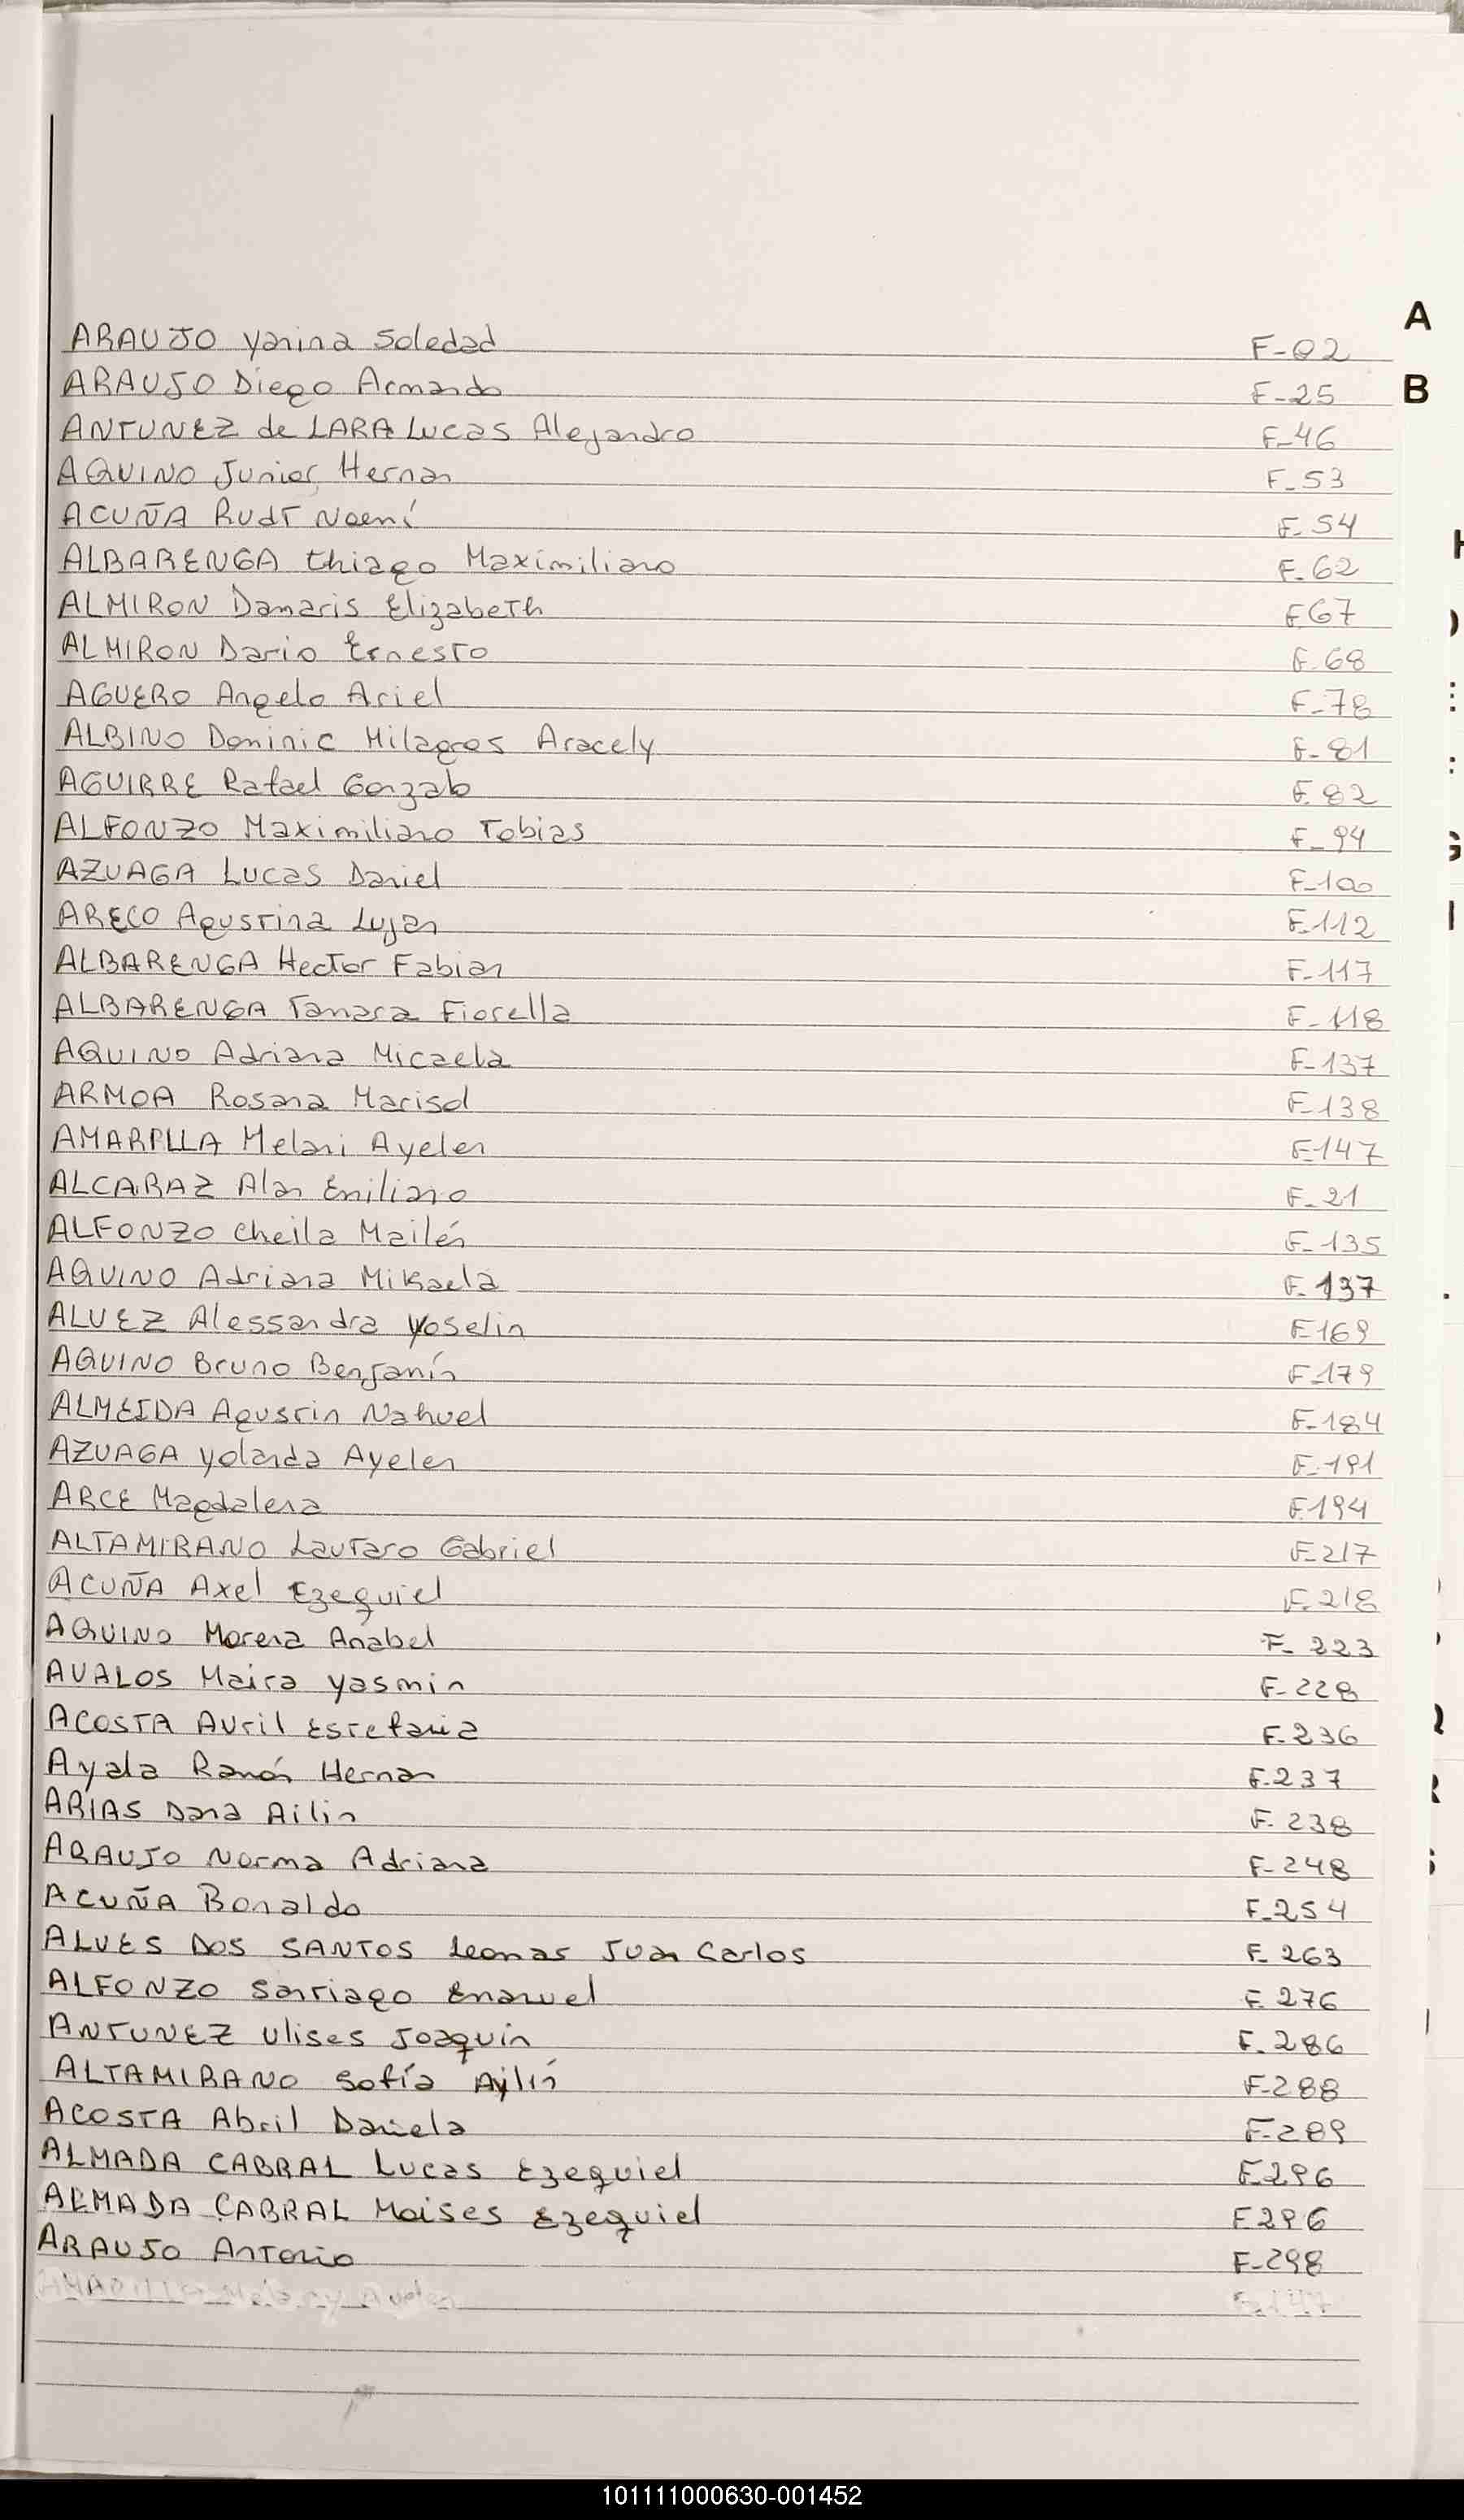 A
ARAUJO Yanina Soledad F-02
ARAUJO Diego Armando F-25
B
ANTUNEZ de LARA Lucas Alejandro F-46
AQUINO Junior Hernan F-53
ACUÑA Rudt Noemí F-54
ALBARENGA thiago Maximiliano F-62
ALMIRON Damaris Elizabeth F67
ALMIRON Dario Ernesto F-68
AGUERO Angelo Ariel F-78
ALBINO Dominic Milagros Aracely F-81
AGUIRRE Rafael Gonzalo F-82
ALFONZO Maximiliano Tobias F-94
AZUAGA Lucas Daniel F-100
ARECO Agustina Lujan F-112
ALBARENGA Hector Fabian F-117
ALBARENGA Tamara Fiorella F-118
AQUINO Adriana Micaela F-137
ARMOA Rosana Marisol F-138
AMARILLA Melani Ayelen F-147
ALCARAZ Alan Emiliano F-21
ALFONZO Cheila Mailén F-135
AQUINO Adriana Mikaela F-137
ALVEZ Alessandra Yoselin F169
AQUINO Bruno Benjamín F-179
ALMEIDA Agustin Nahuel F-184
AZUAGA Yolanda Ayelen F-191
ARCE Magdalena F-194
ALTAMIRANO Lautaro Gabriel F-217
ACUÑA Axel Ezequiel F-218
AQUINO Morena Anabel F-223
AVALOS Maira Yasmin F-228
ACOSTA Avril Estefania F-236
Ayala Ramón Hernan F-237
ARIAS Dana Ailin F-238
ARAUJO Norma Adriana F-248
ACUÑA Ronaldo F-254
ALVES DOS SANTOS Leonas Juan Carlos F-263
ALFONZO Santiago Emanuel F-276
ANTUNEZ Ulises Joaquín F-286
ALTAMIRANO Sofía Aylín F-288
ACOSTA Abril Daniela F-289
ALMADA CABRAL Lucas Ezequiel F-296
ALMADA CABRAL Moises Ezequiel F296
ARAUJO Antonio F-298
101111000630-001452